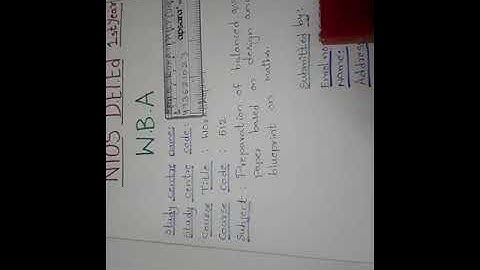 NIOS DELEd 1st Year
W.B.A
Study centre name:
apsara
Study centre code: 9136210123
Course Title : Workshop
Course code : 512
Subject : Preparation of balanced
paper based on design and
blueprint on maths.
Submitted by:
Enrol no
Name:
Address